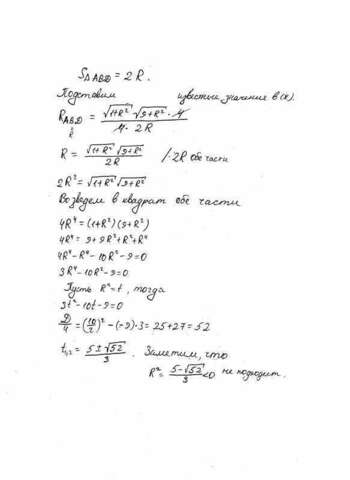 S△ABD = 2R.
Подставим известные значения в (*).
R_ABD = √(1+R²) √(9+R²) · 4 / 4 · 2R
R
R = √(1+R²) √(9+R²) / 2R /· 2R обе части
2R² = √(1+R²) √(9+R²)
Возведем в квадрат обе части
4R⁴ = (1+R²)(9+R²)
4R⁴ = 9+9R²+R²+R⁴
4R⁴-R⁴-10R²-9=0
3R⁴-10R²-9=0
Пусть R²=t, тогда
3t²-10t-9=0
D/4 = (10/2)² - (-9)·3 = 25+27 = 52
t₁,₂ = (5±√52)/3. Заметим, что
R² = (5-√52)/3 <0 не подходит.